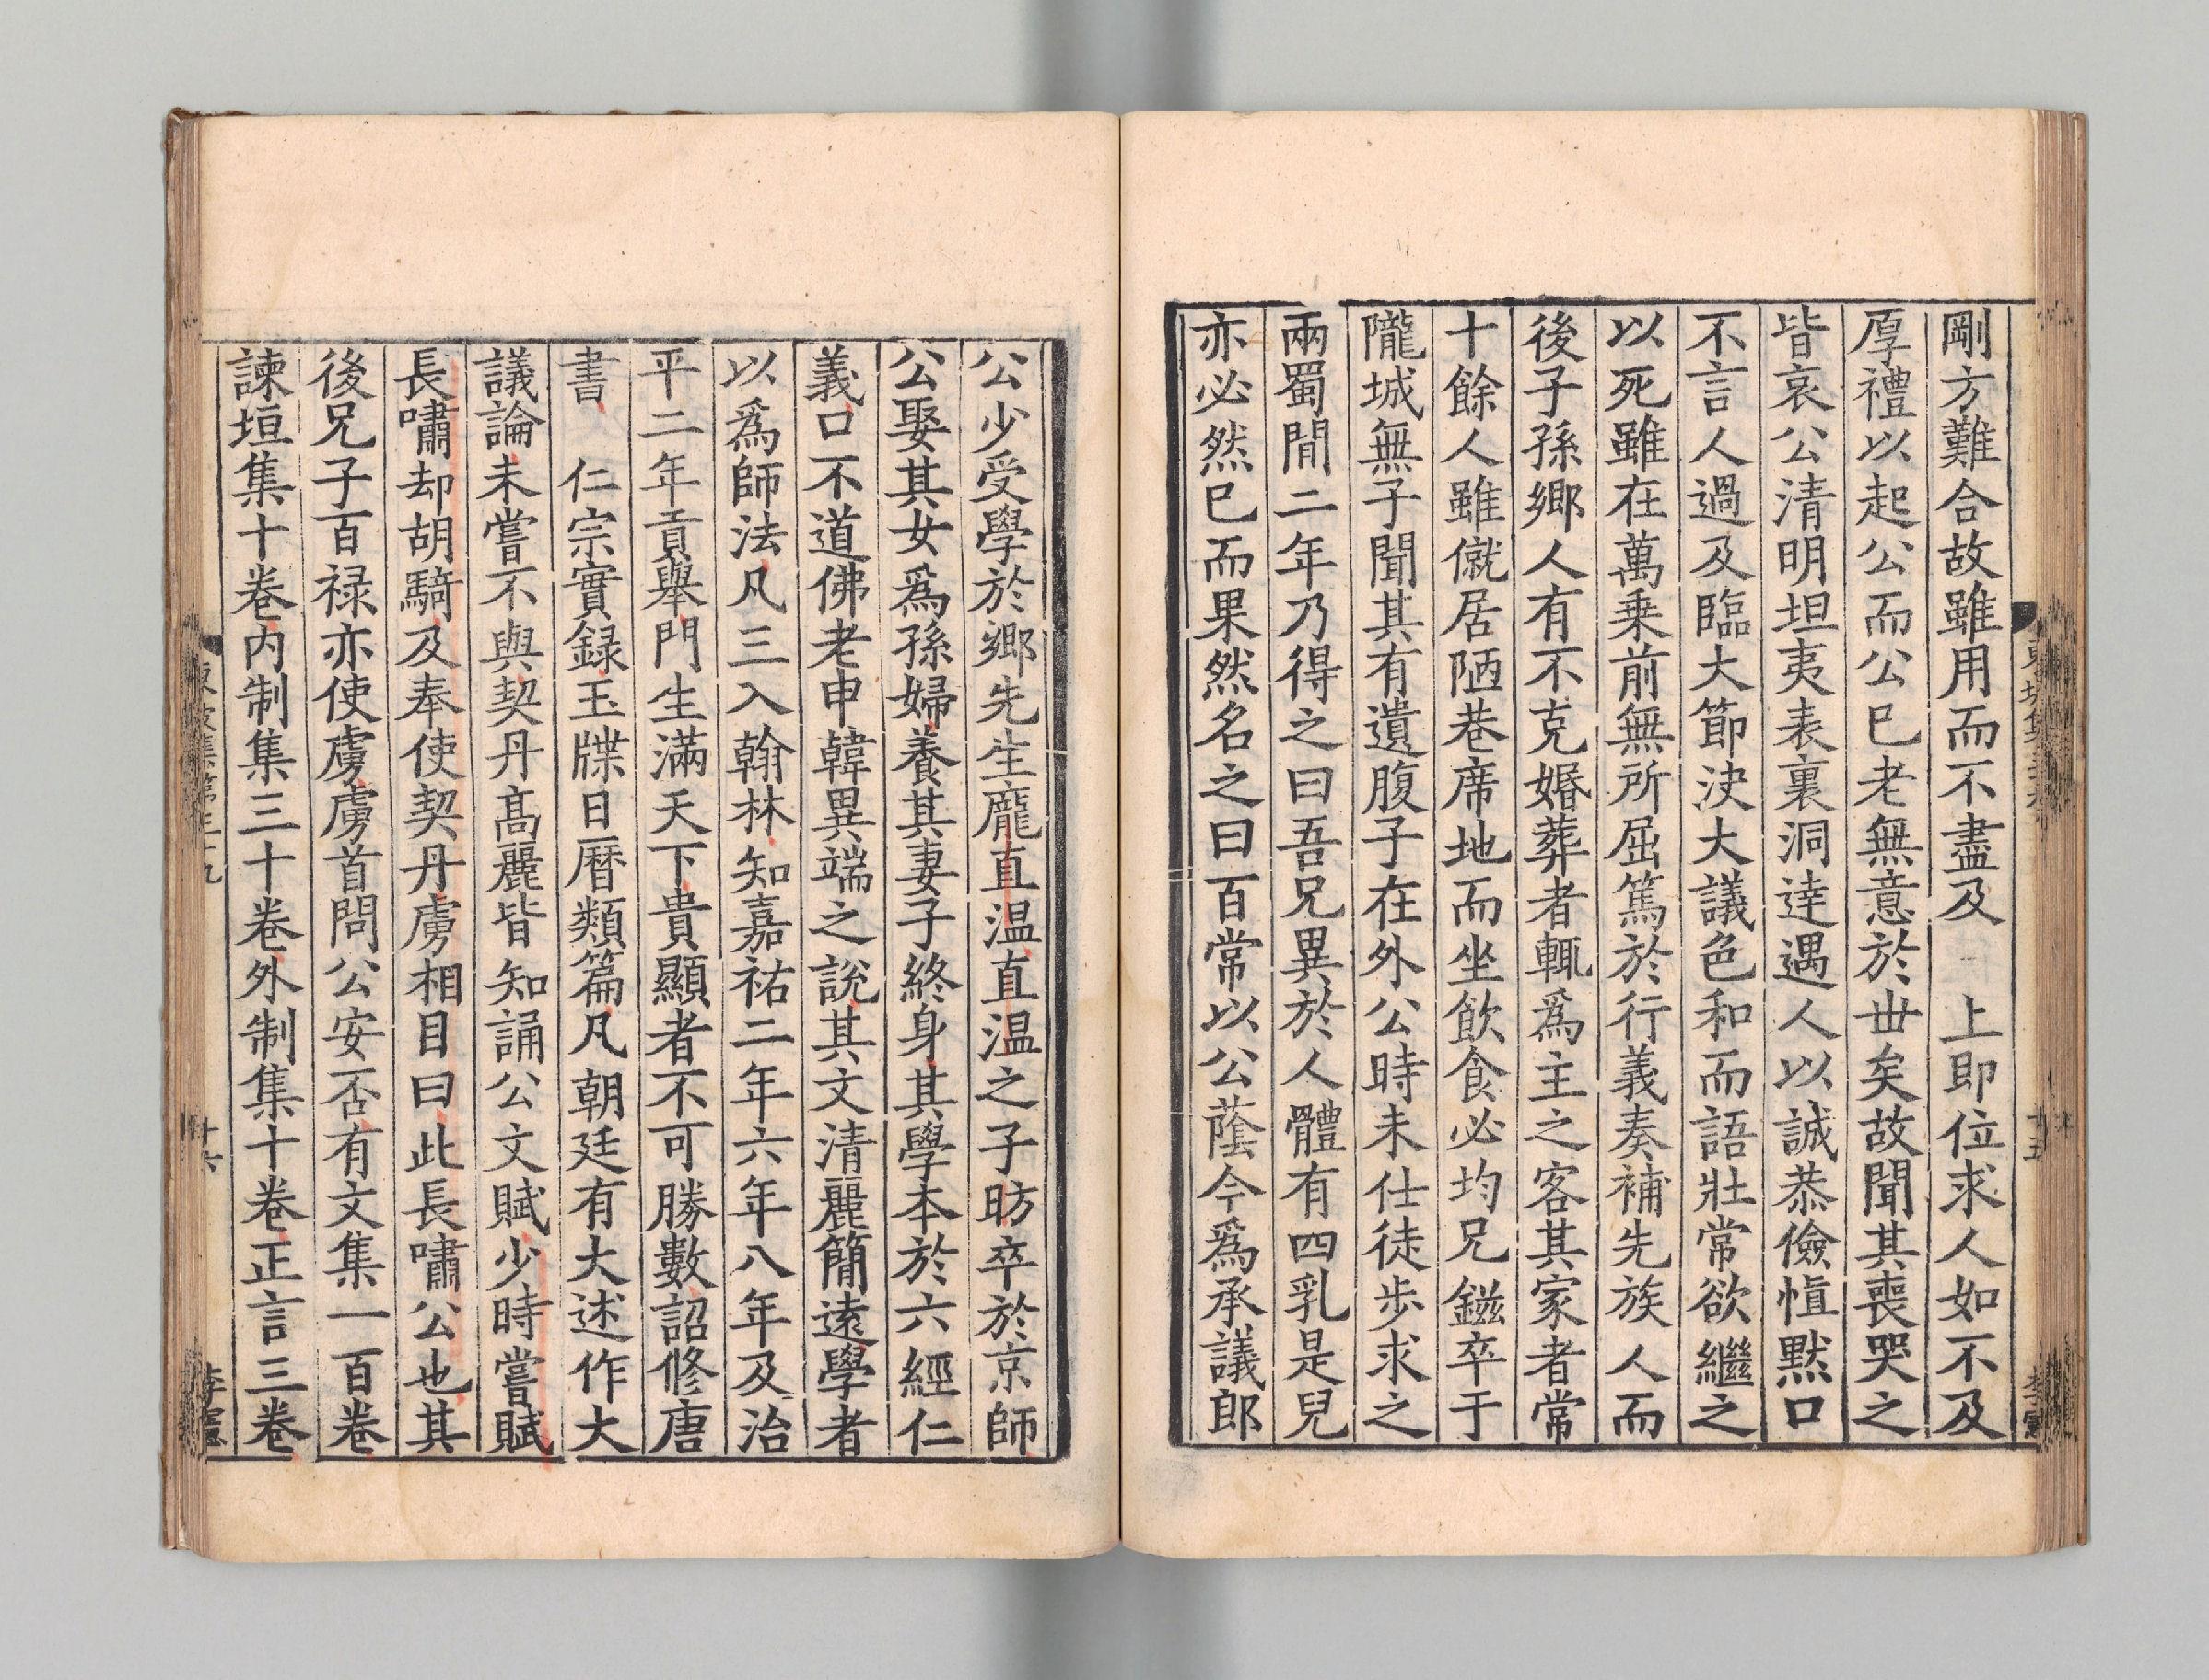 剛方難合故雖用而不盡及　上即位求人如不及
厚禮以起公而公已老無意於丗矣故聞其喪哭之
皆哀公清明坦夷表裏洞逹遇人以誠恭儉慎黙口
不言人過及臨大節決大議色和而語壯常欲繼之
以死雖在萬乗前無所屈篤於行義奏補先族人而
後子孫鄉人有不克婚葬者輒爲主之客其家者常
十餘人雖僦居陋巷席地而坐飲食必均兄鎡卒于
隴城無子聞其有遺腹子在外公時未仕徒步求之
兩蜀間二年乃得之曰吾兄異於人體有四乳是兒
亦必然已而果然名之曰百常以公蔭今爲承議郎
公少受學於鄉先生龐直温直温之子昉卒於京師
公娶其女爲孫婦養其妻子終身其學本於六經仁
義口不道佛老申韓異端之說其文清麗簡遠學者
以爲師法凡三入翰林知嘉祐二年六年八年及治
平二年貢舉門生滿天下貴顯者不可勝數詔修唐
書　仁宗實録玉牒日曆類篇凡朝廷有大述作大
議論未嘗不與契丹髙麗皆知誦公文賦少時嘗賦
長嘯却胡騎及奉使契丹虜相目曰此長嘯公也其
後兄子百禄亦使虜虜首問公安否有文集一百卷
諫垣集十卷内制集三十卷外制集十卷正言三卷
東坡集第三十九
十六